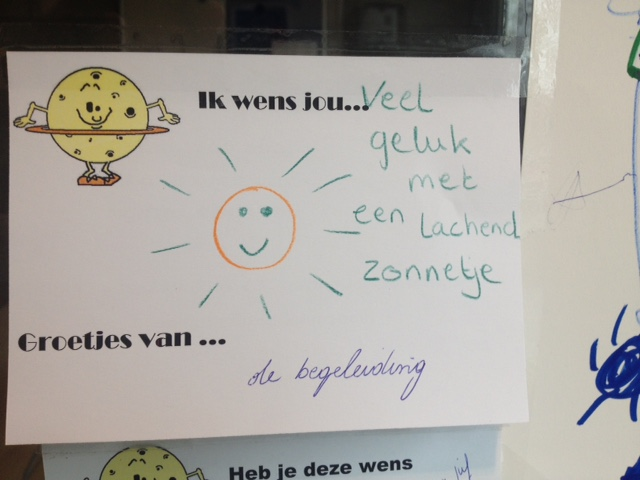 Ik wens jou... Veel
geluk
met
een lachend
zonnetje
Groetjes van ...
de begeleiding
Heb je deze wens
juf